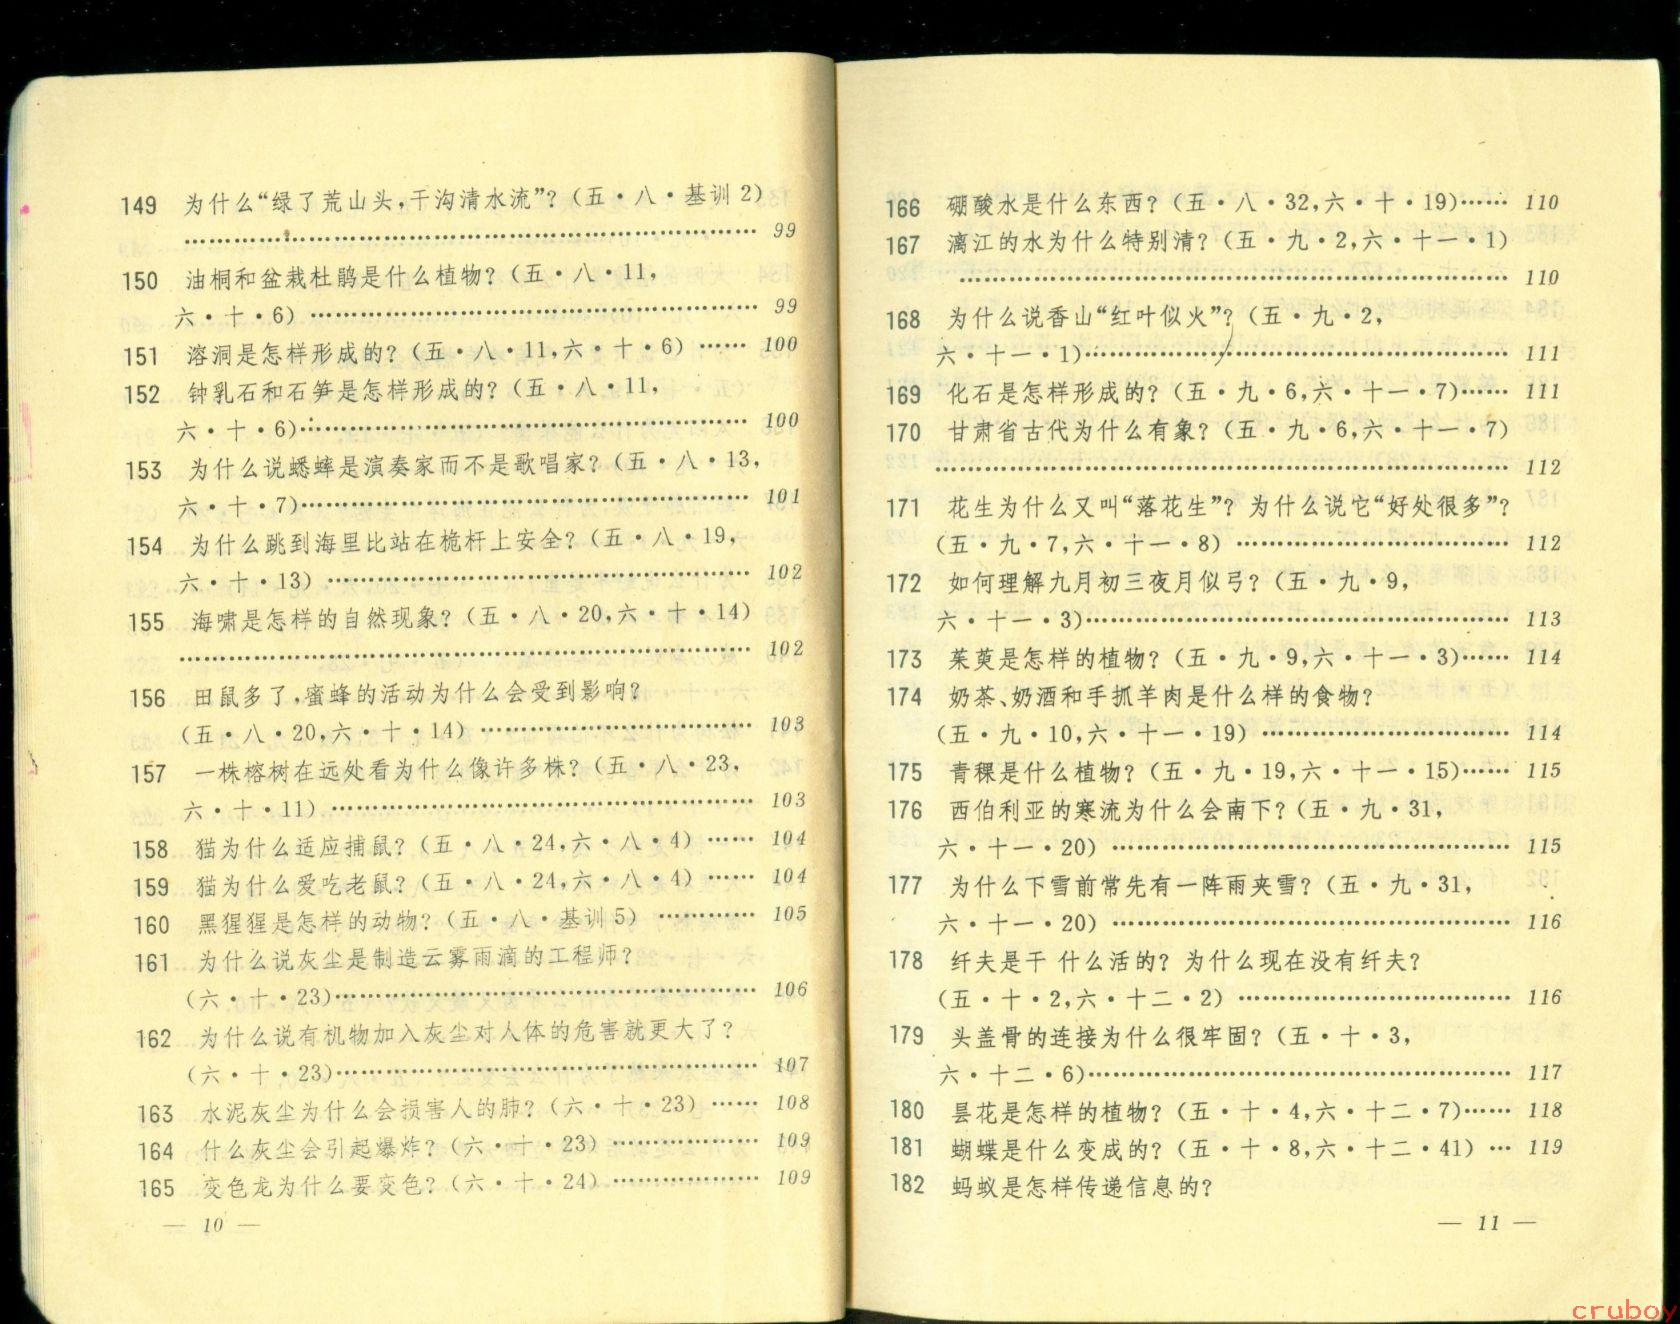 149 为什么“绿了荒山头，干沟清水流”？（五·八·基训2）
…… 99
150 油桐和盆栽杜鹃是什么植物？（五·八·11，
六·十·6）…… 99
151 溶洞是怎样形成的？（五·八·11，六·十·6）…… 100
152 钟乳石和石笋是怎样形成的？（五·八·11，
六·十·6）…… 100
153 为什么说蟋蟀是演奏家而不是歌唱家？（五·八·13，
六·十·7）…… 101
154 为什么跳到海里比站在桅杆上安全？（五·八·19，
六·十·13）…… 102
155 海啸是怎样的自然现象？（五·八·20，六·十·14）
…… 102
156 田鼠多了，蜜蜂的活动为什么会受到影响？
（五·八·20，六·十·14）…… 103
157 一株榕树在远处看为什么像许多株？（五·八·23，
六·十·11）…… 103
158 猫为什么适应捕鼠？（五·八·24，六·八·4）…… 104
159 猫为什么爱吃老鼠？（五·八·24，六·八·4）…… 104
160 黑猩猩是怎样的动物？（五·八·基训5）…… 105
161 为什么说灰尘是制造云雾雨滴的工程师？
（六·十·23）…… 106
162 为什么说有机物加入灰尘对人体的危害就更大了？
（六·十·23）…… 107
163 水泥灰尘为什么会损害人的肺？（六·十·23）…… 108
164 什么灰尘会引起爆炸？（六·十·23）…… 109
165 变色龙为什么要变色？（六·十·24）…… 109
— 10 —
166 硼酸水是什么东西？（五·八·32，六·十·19）…… 110
167 漓江的水为什么特别清？（五·九·2，六·十一·1）
…… 110
168 为什么说香山“红叶似火”？（五·九·2，
六·十一·1）…… 111
169 化石是怎样形成的？（五·九·6，六·十一·7）…… 111
170 甘肃省古代为什么有象？（五·九·6，六·十一·7）
…… 112
171 花生为什么又叫“落花生”？为什么说它“好处很多”？
（五·九·7，六·十一·8）…… 112
172 如何理解九月初三夜月似弓？（五·九·9，
六·十一·3）…… 113
173 茱萸是怎样的植物？（五·九·9，六·十一·3）…… 114
174 奶茶、奶酒和手抓羊肉是什么样的食物？
（五·九·10，六·十一·19）…… 114
175 青稞是什么植物？（五·九·19，六·十一·15）…… 115
176 西伯利亚的寒流为什么会南下？（五·九·31，
六·十一·20）…… 115
177 为什么下雪前常先有一阵雨夹雪？（五·九·31，
六·十一·20）…… 116
178 纤夫是干什么活的？为什么现在没有纤夫？
（五·十·2，六·十二·2）…… 116
179 头盖骨的连接为什么很牢固？（五·十·3，
六·十二·6）…… 117
180 昙花是怎样的植物？（五·十·4，六·十二·7）…… 118
181 蝴蝶是什么变成的？（五·十·8，六·十二·41）… 119
182 蚂蚁是怎样传递信息的？
— 11 —
cruboy